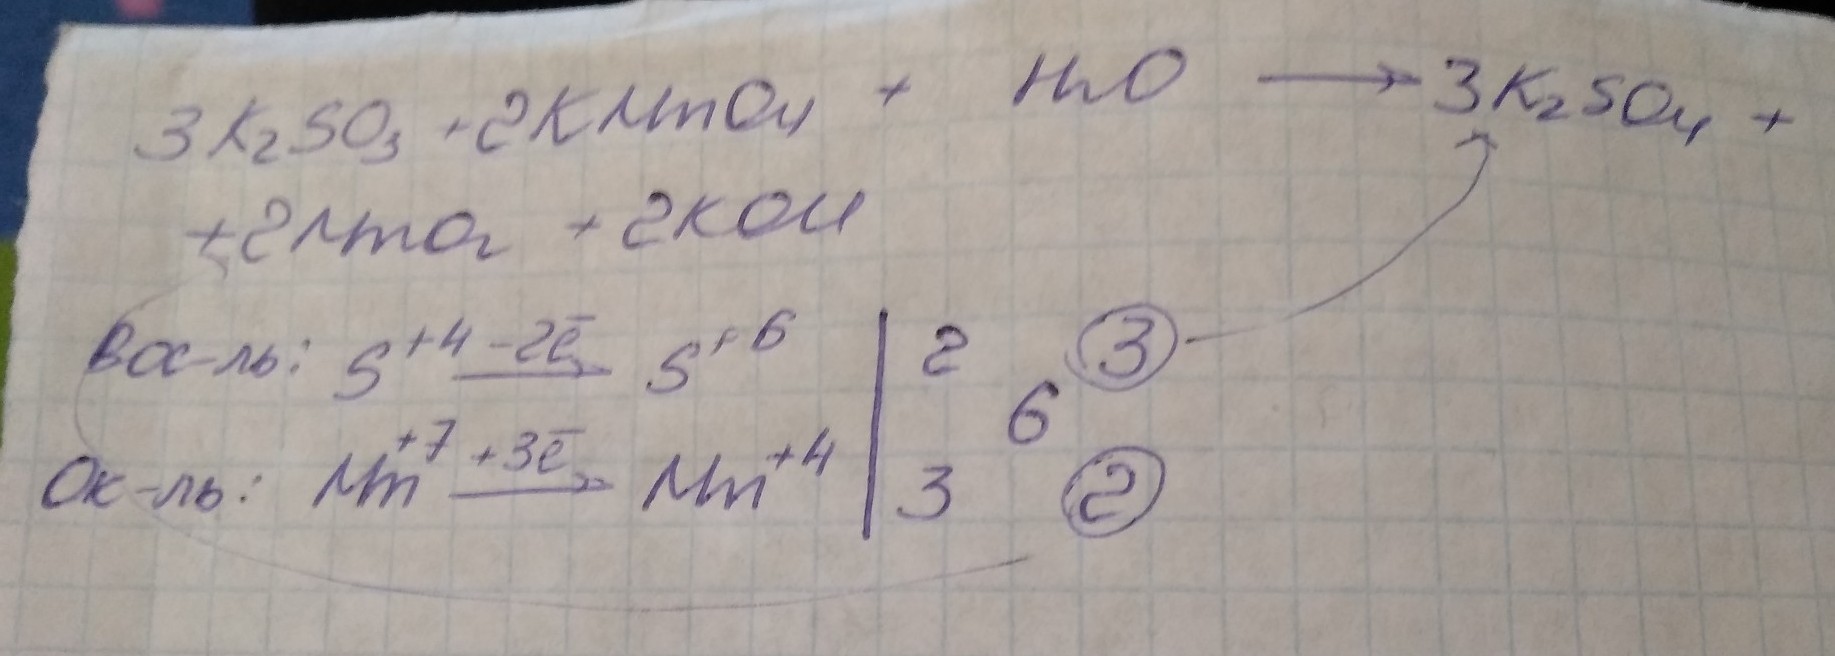 3K₂SO₃ + 2KMnO₄ + H₂O → 3K₂SO₄ +
+ 2MnO₂ + 2KOH
Вос-ль: S⁺⁴ –2ē→ S⁺⁶ | 2 3
6
Ок-ль: Mn⁺⁷ +3ē→ Mn⁺⁴ | 3 2